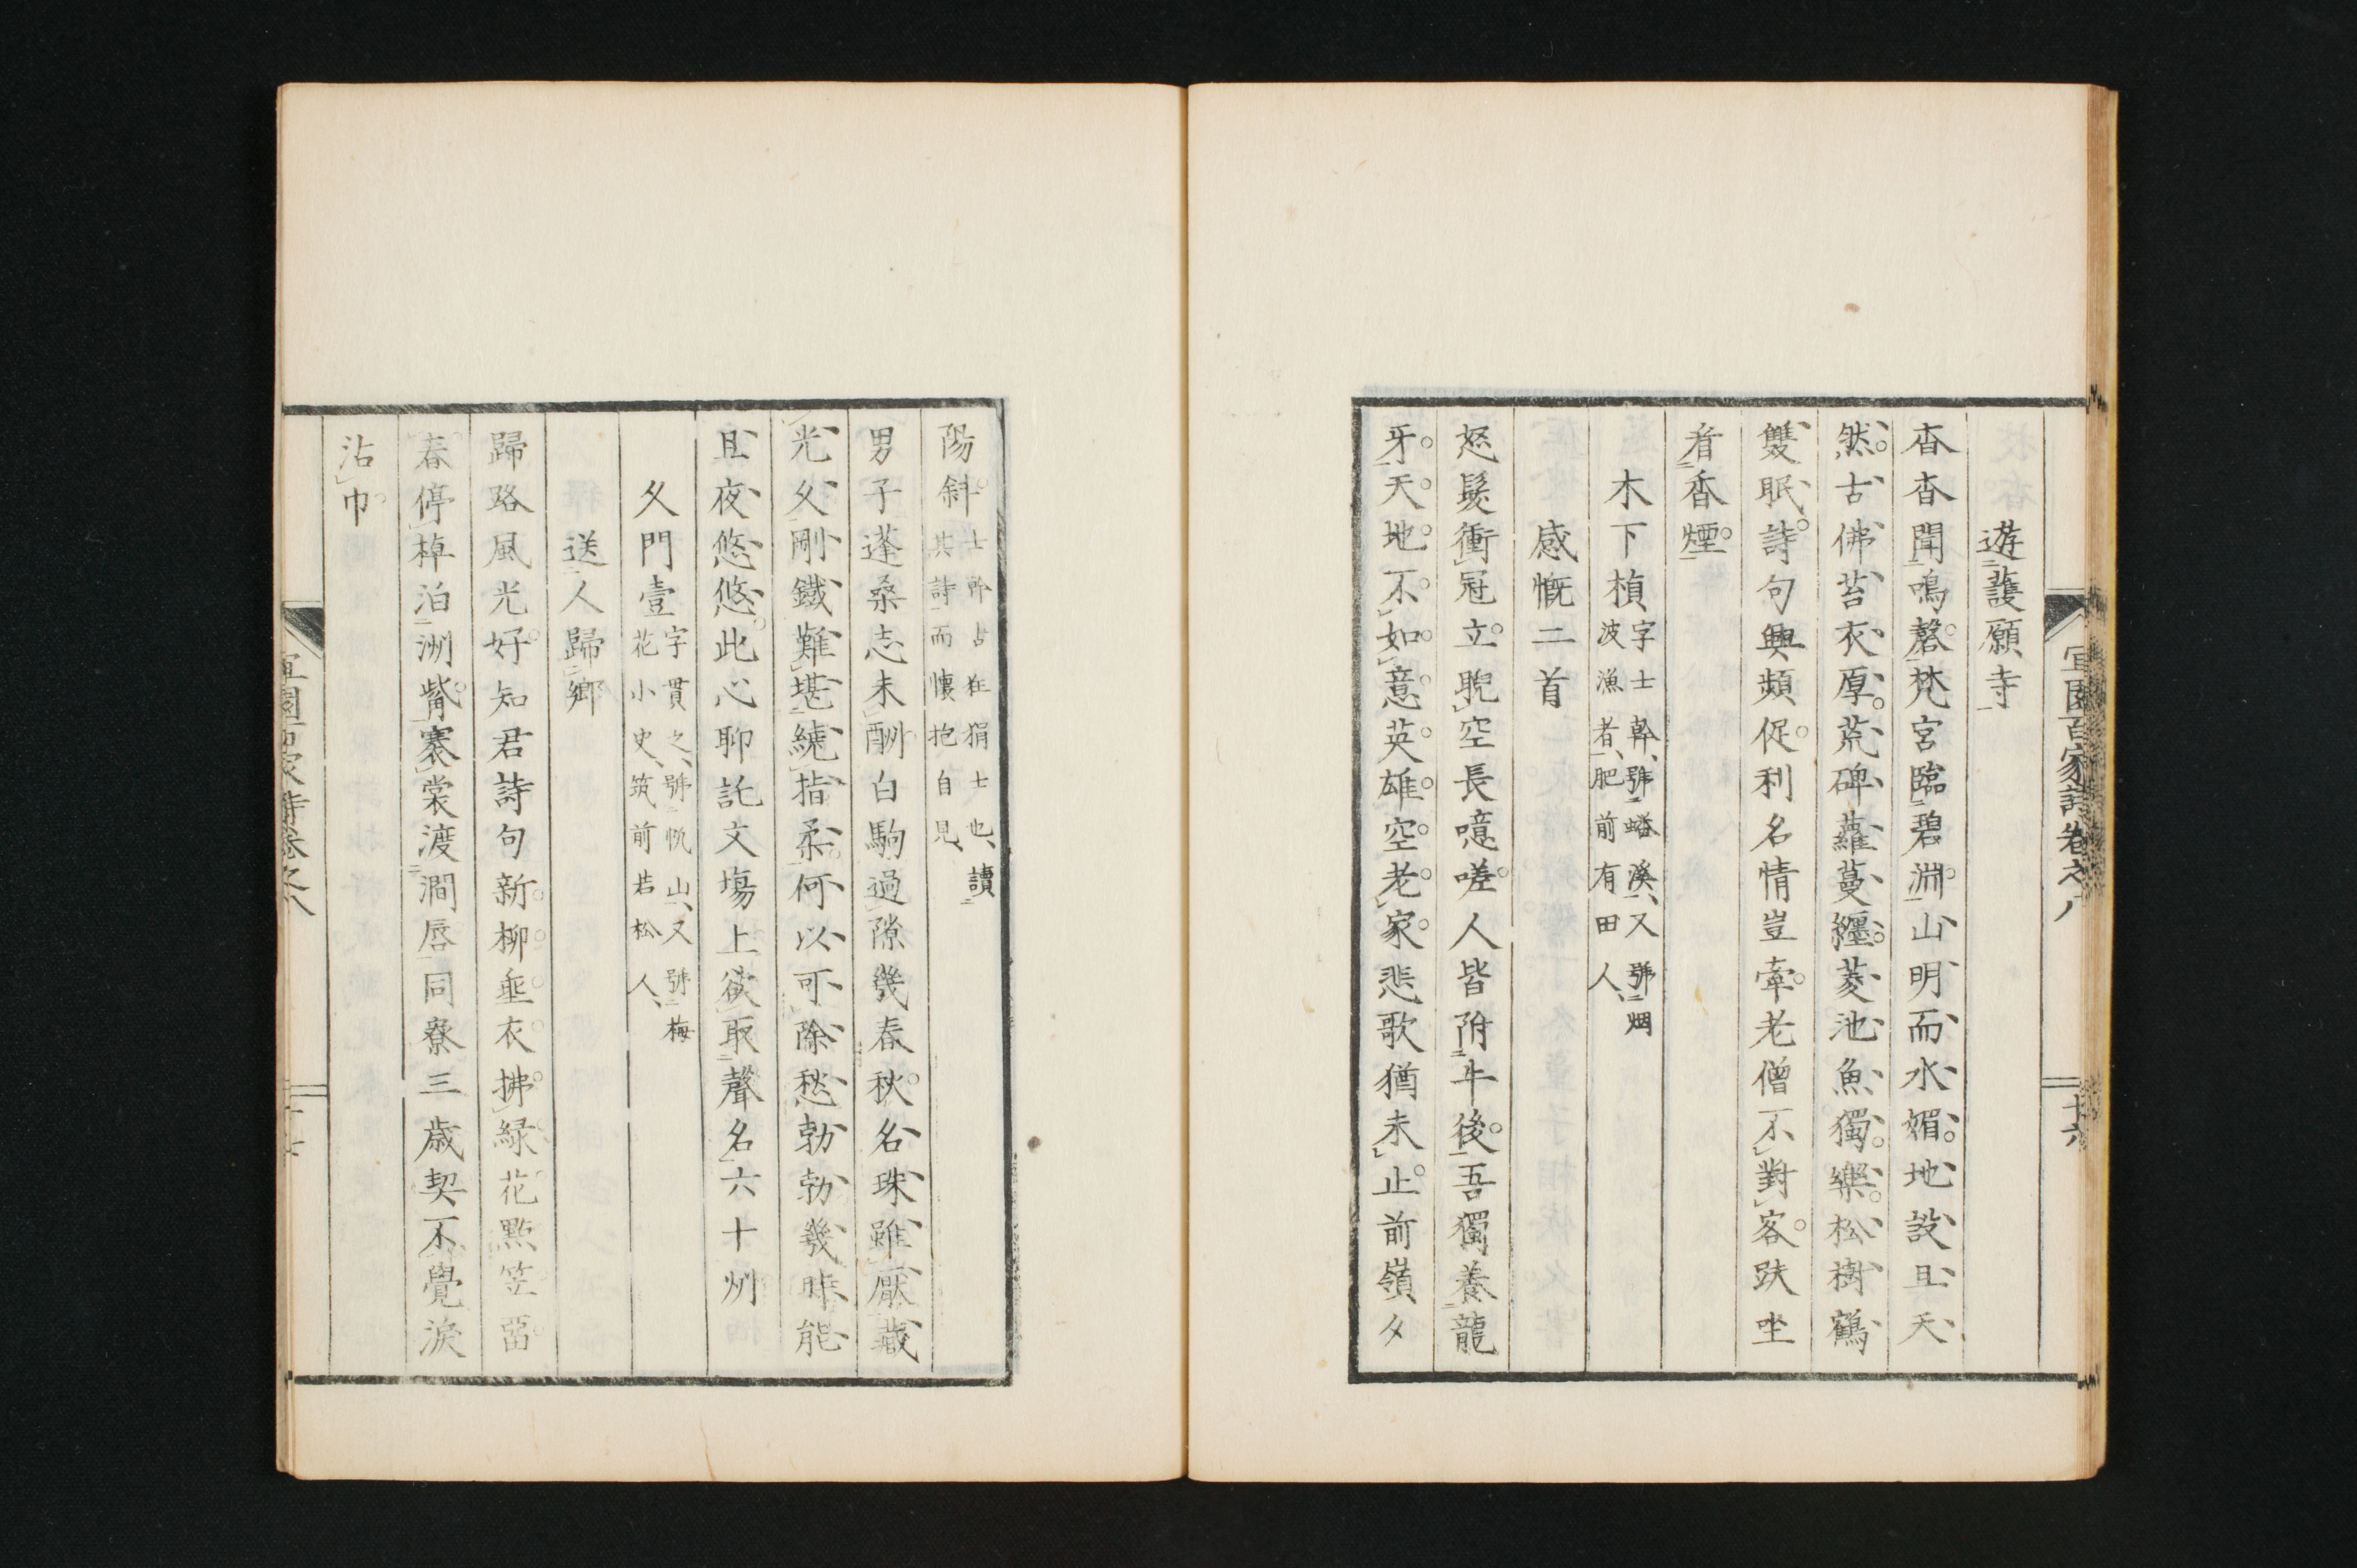 宜園百家詩卷之八
十六
遊護願寺
杳杳聞鳴磬梵宮臨碧淵山明而水媚地設且天
然古佛苔衣厚荒碑蘿蔓纏菱池魚獨樂松樹鶴
雙眠詩句興頻促利名情豈牽老僧不對客趺坐
看香煙
木下槙
字士幹、號蟠溪、又號烟
波漁者、肥前有田人、
感慨二首
怒髮衝冠立睨空長噫嗟人皆附牛後吾獨養龍
牙天地不如意英雄空老家悲歌猶未止前嶺夕
陽斜
士幹古狂狷士也、讀
其詩而懷抱自見、
男子蓬桑志未酬白駒過隙幾春秋名珠雖厭藏
光久剛鐵難堪繞指柔何以可除愁勃勃幾時能
且夜悠悠此心聊託文塲上欲取聲名六十州
久門壹
字貫之、號帆山、又號梅
花小史、筑前若松人、
送人歸鄉
歸路風光好知君詩句新柳垂衣拂綠花點笠留
春停棹泊洲觜褰裳渡澗唇同寮三歲契不覺淚
沾巾
宜園百家詩卷之八